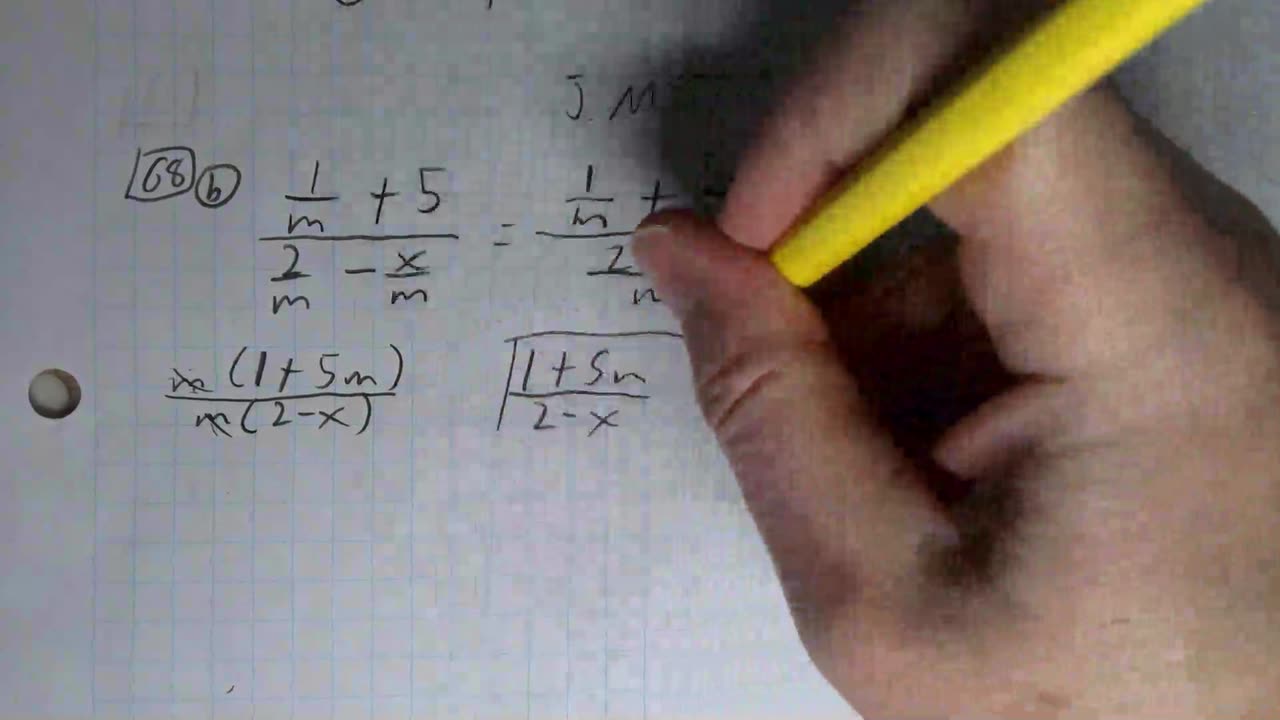 J. M
68 b (1/m + 5)/(2/m - x/m) = (1/m +)/(2/m)
m(1 + 5m)/m(2-x) (1 + 5m)/(2-x)